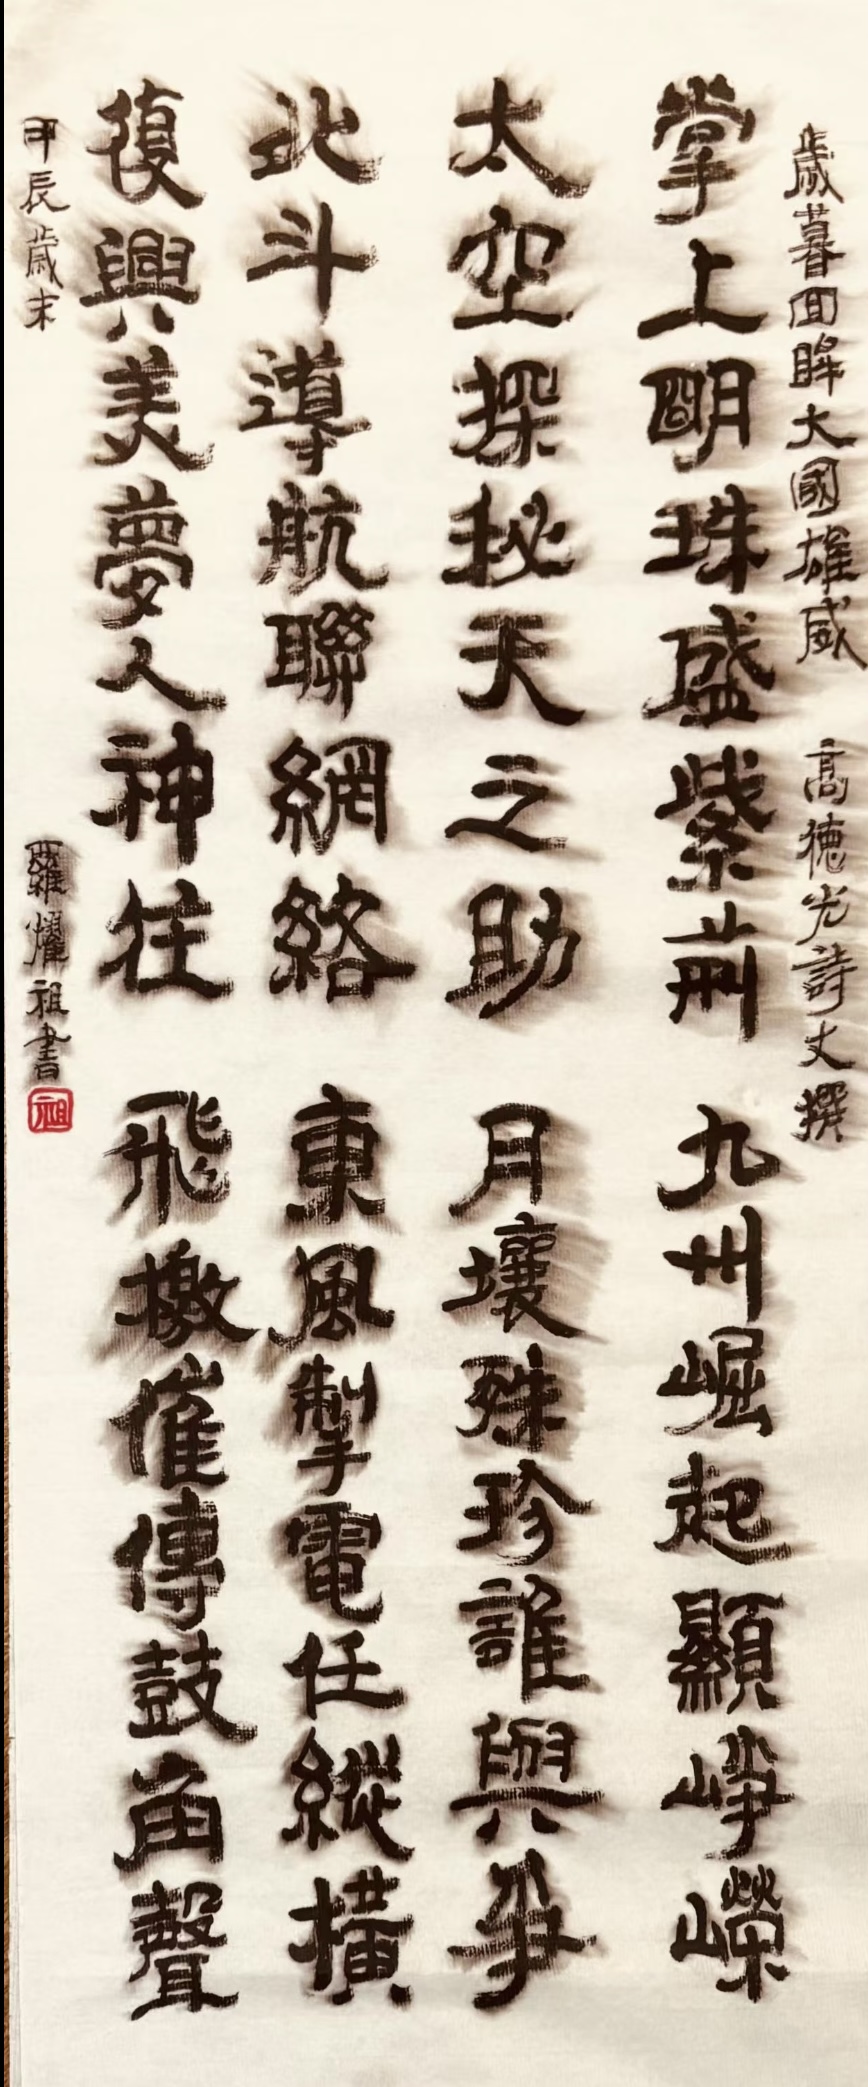 歲暮回眸大國雄威 高德光詩丈撰
掌上明珠盛紫荊 九州崛起顯崢嶸
太空探秘天之助 月壤殊珍誰與爭
北斗導航聯網絡 東風掣電任縱橫
復興美夢人神往 飛檄催傳鼓角聲
甲辰歲末 羅燿祖書
祖